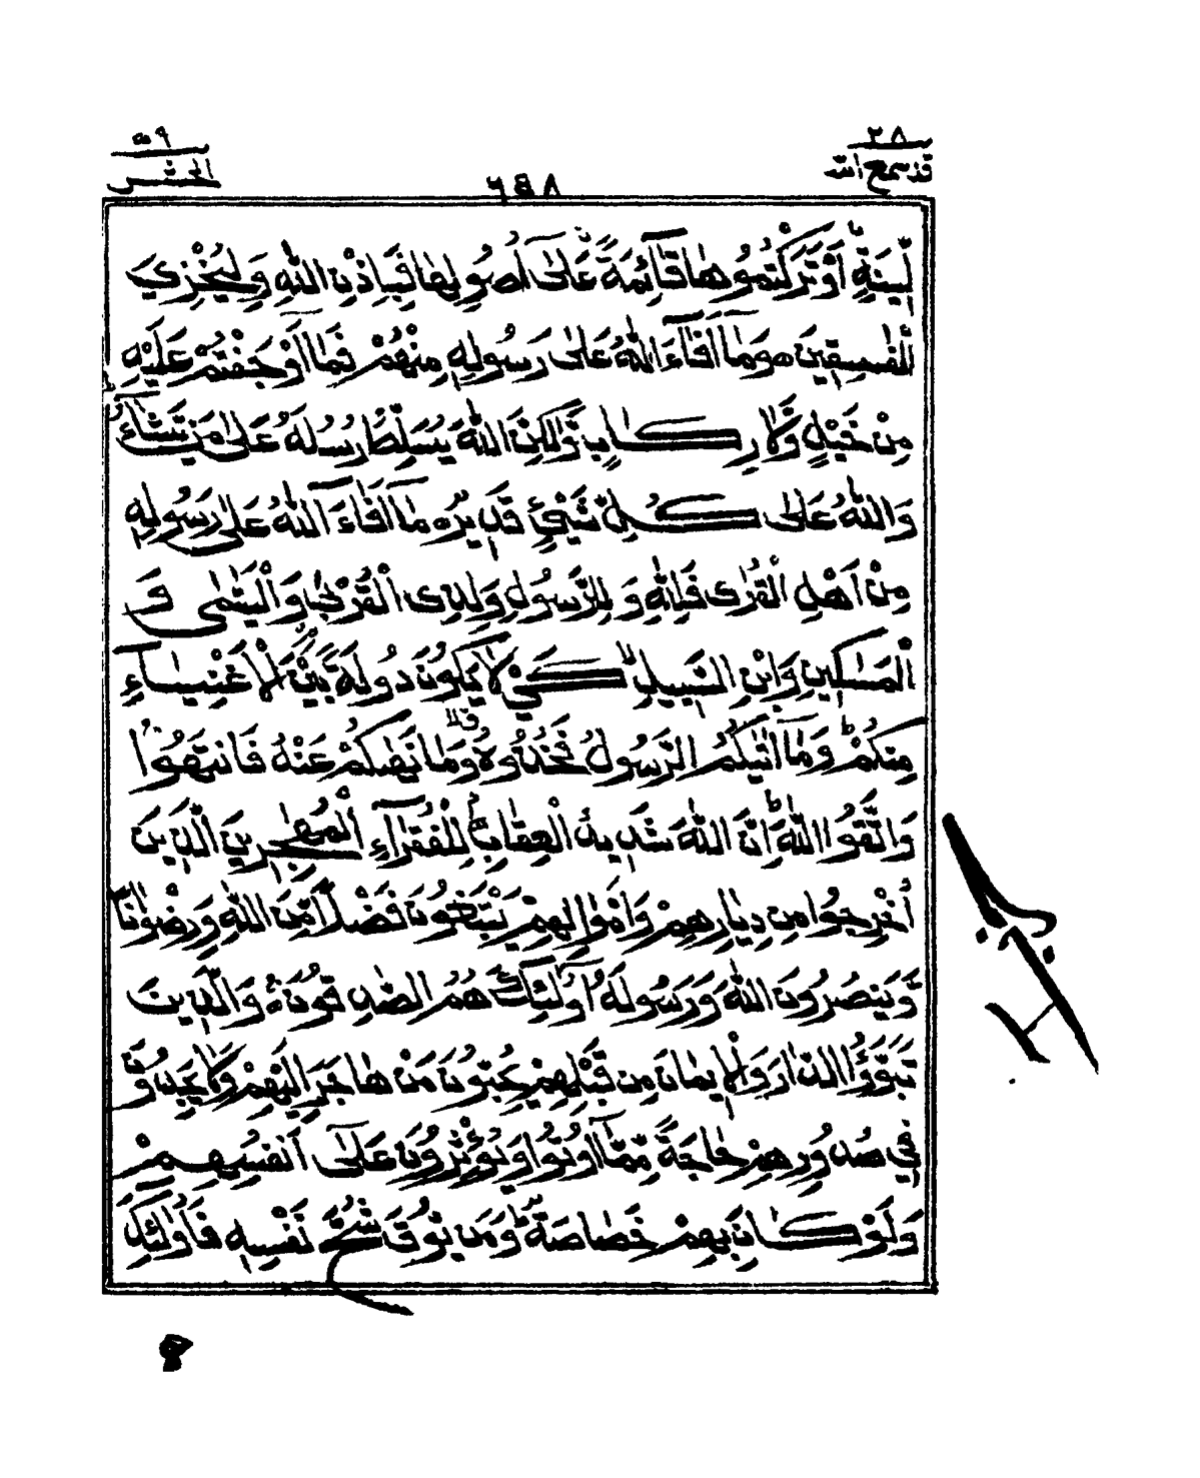 ٢٨
قد سمع الله
٦٤٨
٥٩
الحشر
لِّينَةٍ أَوْ تَرَكْتُمُوهَا قَآئِمَةً عَلٰٓى أُصُولِهَا فَبِإِذْنِ اللّٰهِ وَلِيُخْزِيَ
الْفٰسِقِينَ ه وَمَآ أَفَآءَ اللّٰهُ عَلٰى رَسُولِهِ مِنْهُمْ فَمَآ أَوْجَفْتُمْ عَلَيْهِ
مِنْ خَيْلٍ وَّلَا رِكَابٍ وَّلٰكِنَّ اللّٰهَ يُسَلِّطُ رُسُلَهُ عَلٰى مَن يَّشَآءُ
وَاللّٰهُ عَلٰى كُلِّ شَيْءٍ قَدِيرٌ ه مَآ أَفَآءَ اللّٰهُ عَلٰى رَسُولِهِ
مِنْ أَهْلِ الْقُرٰى فَلِلّٰهِ وَلِلرَّسُولِ وَلِذِى الْقُرْبٰى وَالْيَتٰمٰى وَ
الْمَسٰكِينِ وَابْنِ السَّبِيلِ كَيْ لَا يَكُونَ دُولَةً بَيْنَ الْأَغْنِيَآءِ
مِنكُمْ وَمَآ اٰتٰىكُمُ الرَّسُولُ فَخُذُوهُ وَمَا نَهٰىكُمْ عَنْهُ فَانتَهُوا
وَاتَّقُوا اللّٰهَ إِنَّ اللّٰهَ شَدِيدُ الْعِقَابِ لِلْفُقَرَآءِ الْمُهٰجِرِينَ الَّذِينَ
أُخْرِجُوا مِن دِيَارِهِمْ وَأَمْوٰلِهِمْ يَبْتَغُونَ فَضْلًا مِّنَ اللّٰهِ وَرِضْوٰنًا
وَّيَنصُرُونَ اللّٰهَ وَرَسُولَهُ أُولٰٓئِكَ هُمُ الصّٰدِقُونَ ه وَالَّذِينَ
تَبَوَّؤُا الدَّارَ وَالْإِيمَانَ مِن قَبْلِهِمْ يُحِبُّونَ مَنْ هَاجَرَ إِلَيْهِمْ وَلَا يَجِدُونَ
فِي صُدُورِهِمْ حَاجَةً مِّمَّآ أُوتُوا وَيُؤْثِرُونَ عَلٰٓى أَنفُسِهِمْ
وَلَوْ كَانَ بِهِمْ خَصَاصَةٌ وَمَن يُّوقَ شُحَّ نَفْسِهِ فَأُولٰٓئِكَ